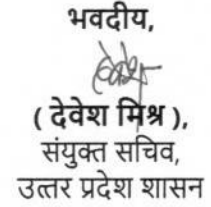 भवदीय,
( देवेश मिश्र ),
संयुक्त सचिव,
उत्तर प्रदेश शासन